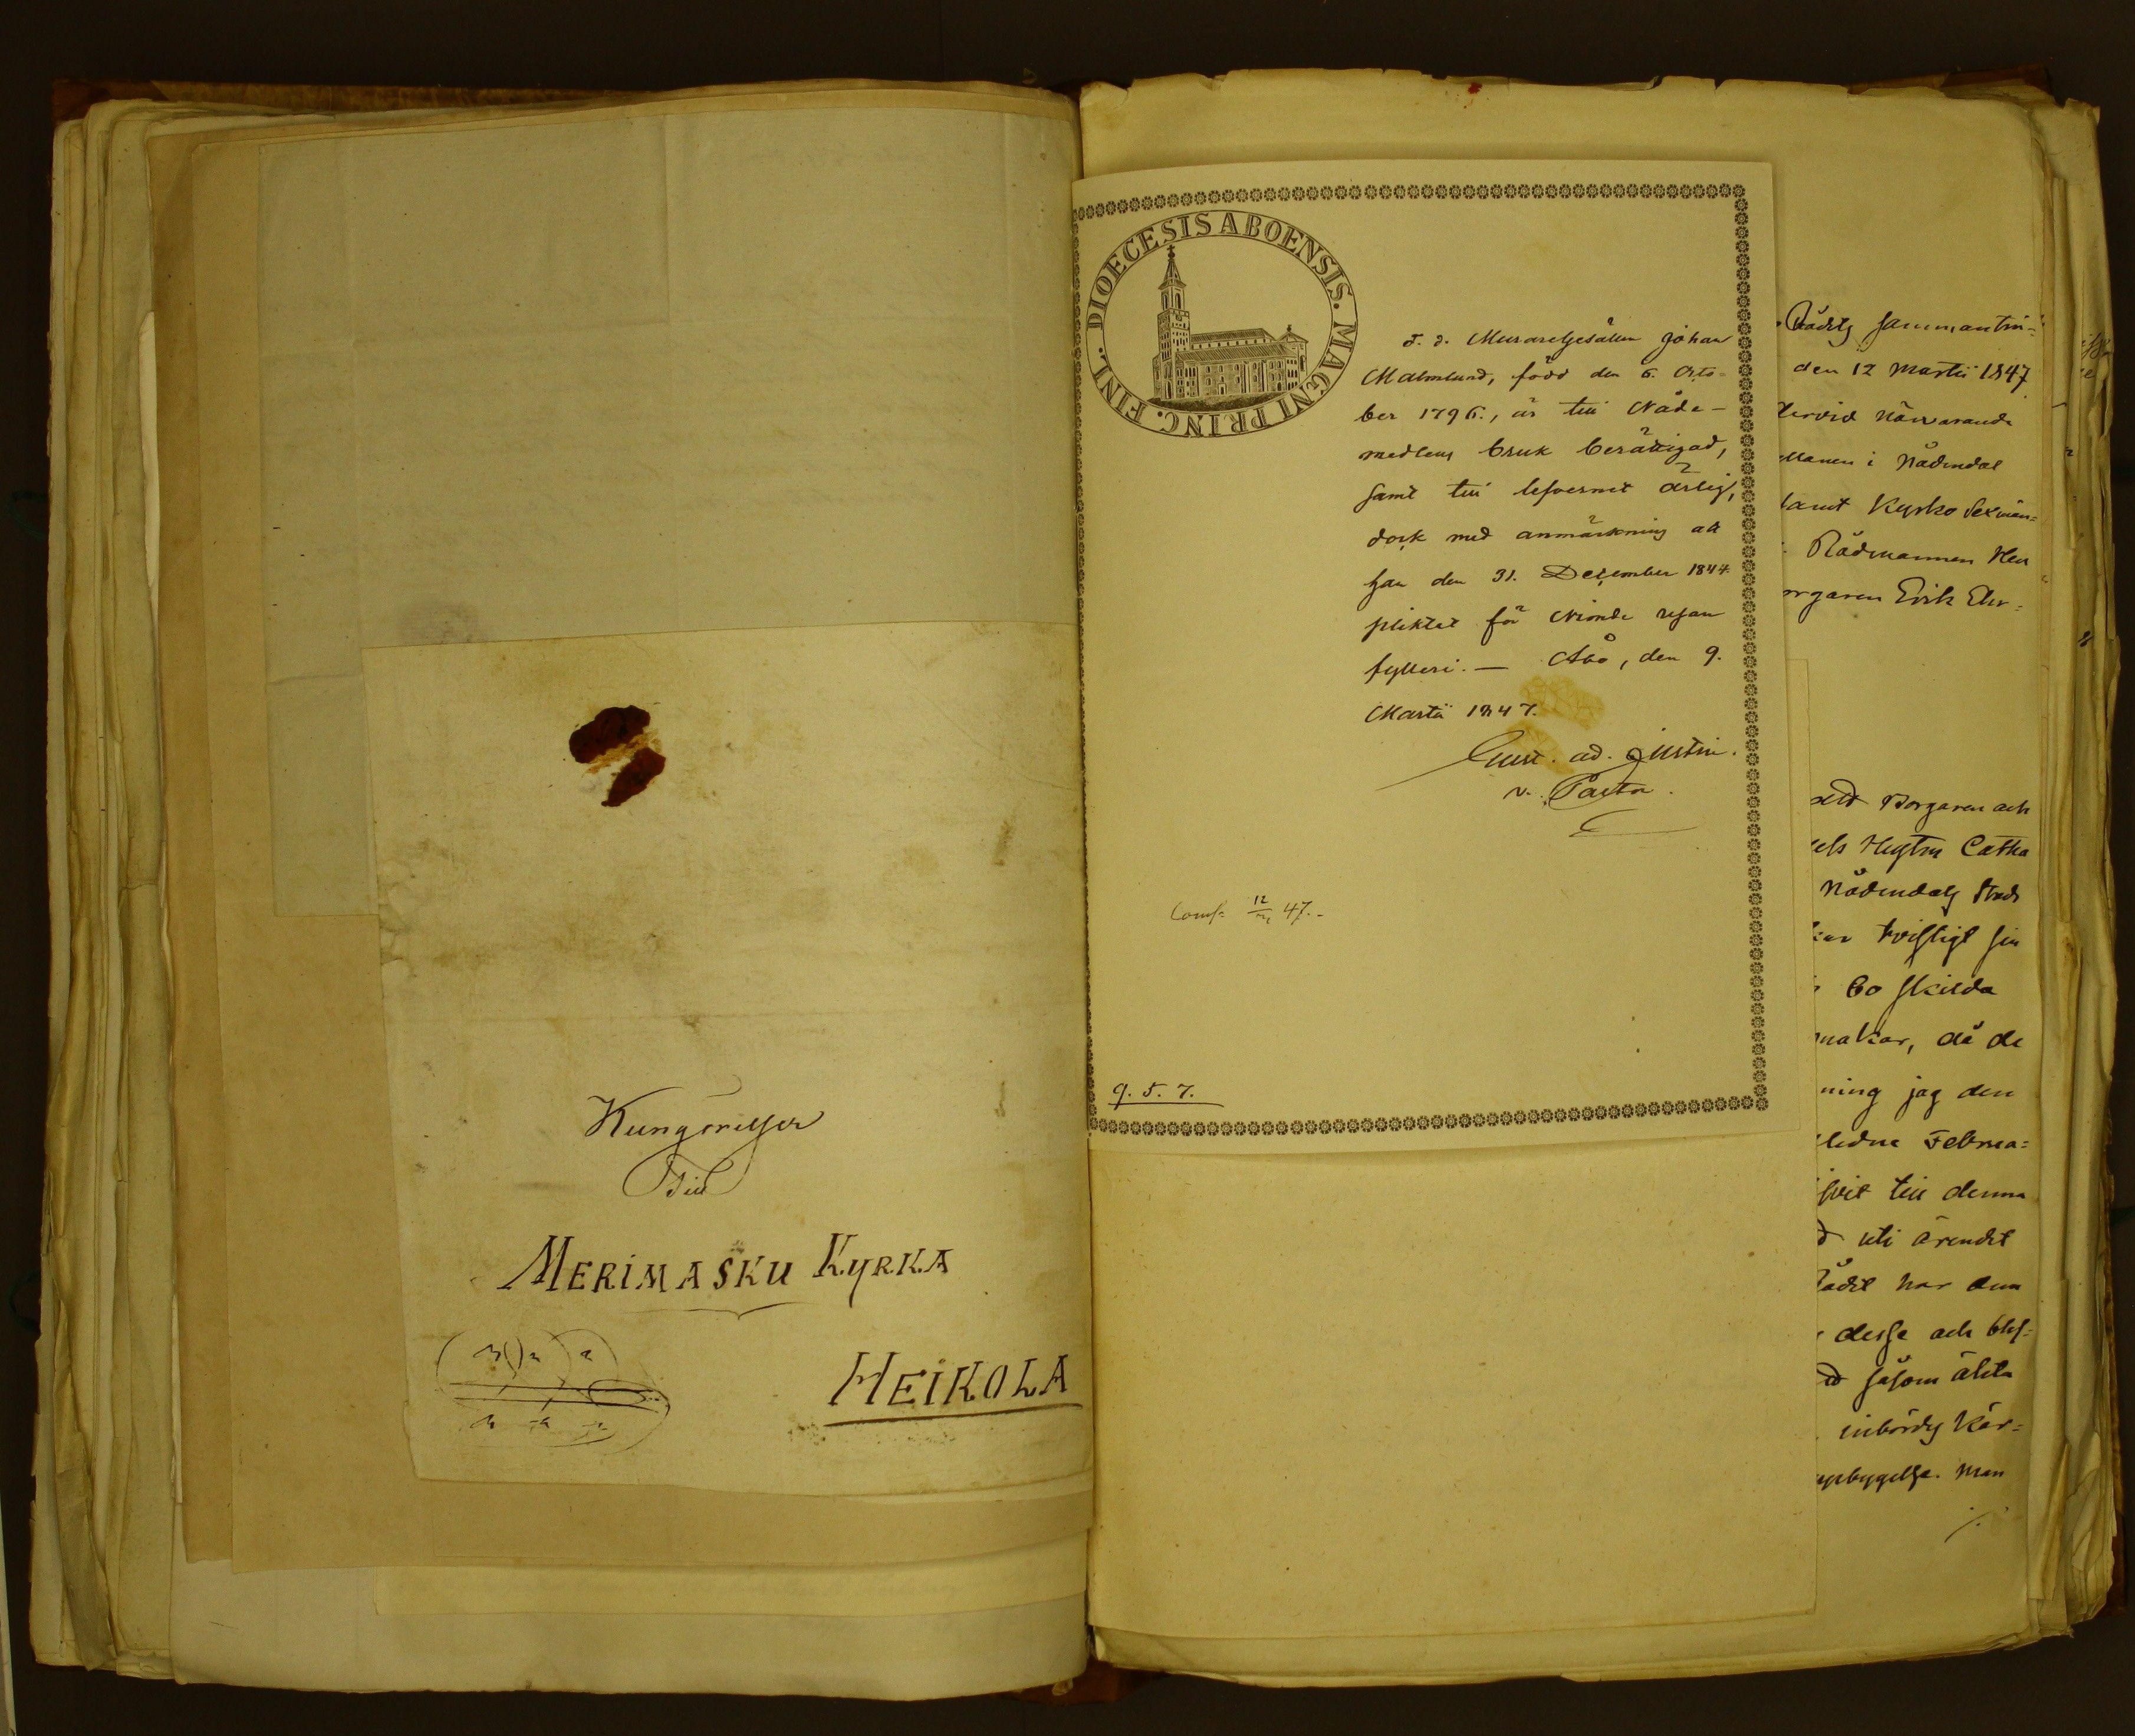 Kungörelser
Till
MERIMASKU KYRKA
HEIKOLA
DIOECESIS ABOENSIS. MAGNI PRINC. FINL.
F. d. Muraregesällen Johan
Malmlund, född den 6. Octo-
ber 1796., är till Nåde-
medlens bruk berättigad,
samt till lefvernet ärlig,
dock med anmärkning att
han den 31. December 1844
pliktat för resan
fylleri. — Åbo, den 9.
Martii 1847.
Gust. ad. Justin.
v. Pastor.
12 47.-
9. 5. 7.
Rådets samman
den 12 Martii 1847
närvarande
i Nådendal
samt Kyrko Sexmän=
Rådmannen
Erik
Borgaren och
Cath
Nådendals Stads
tvistigt sin
Bo skilda
makar, då de
ning jag den
Februa=
till denna
uti ärendet
har dem
desse och
såsom äkta
inbördes kär=
Men